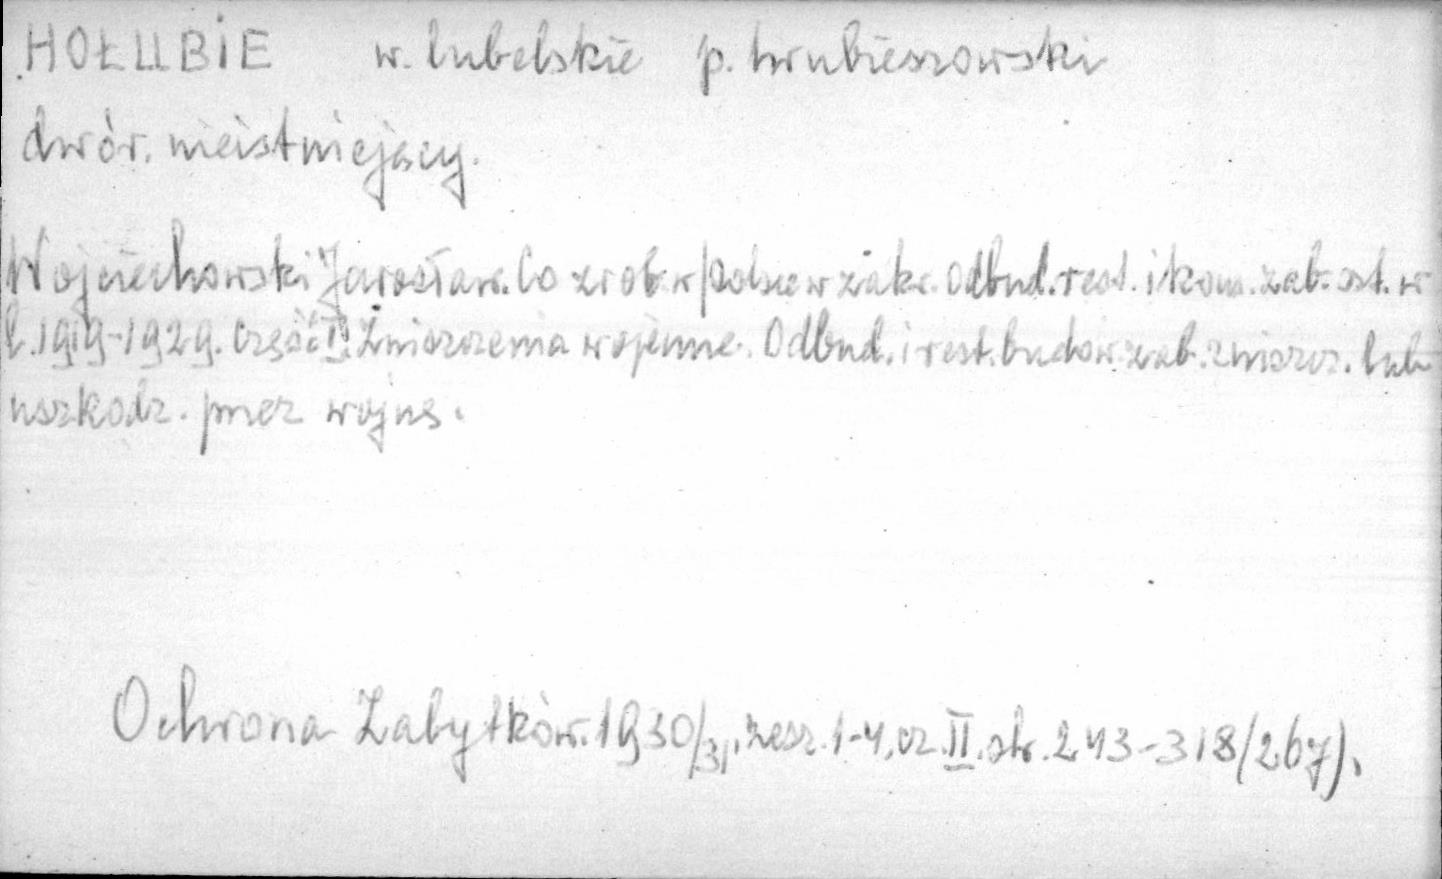 HOŁUBIE w. lubelskie p. hrubieszowski
dwór. nieistniejący.
Wojciechowski Jarosław. Co zrob. w Polsce w zakr. Odbud. rest. i kons. zab. szt. w
l. 1919-1929. Część I. Zniszczenia wojenne. Odbud. i rest. budow. zab. zniszcz. lub
uszkodz. przez wojnę.
Ochrona Zabytków. 1930/31, zesz. 1-4, cz. II. str. 243-318/267).